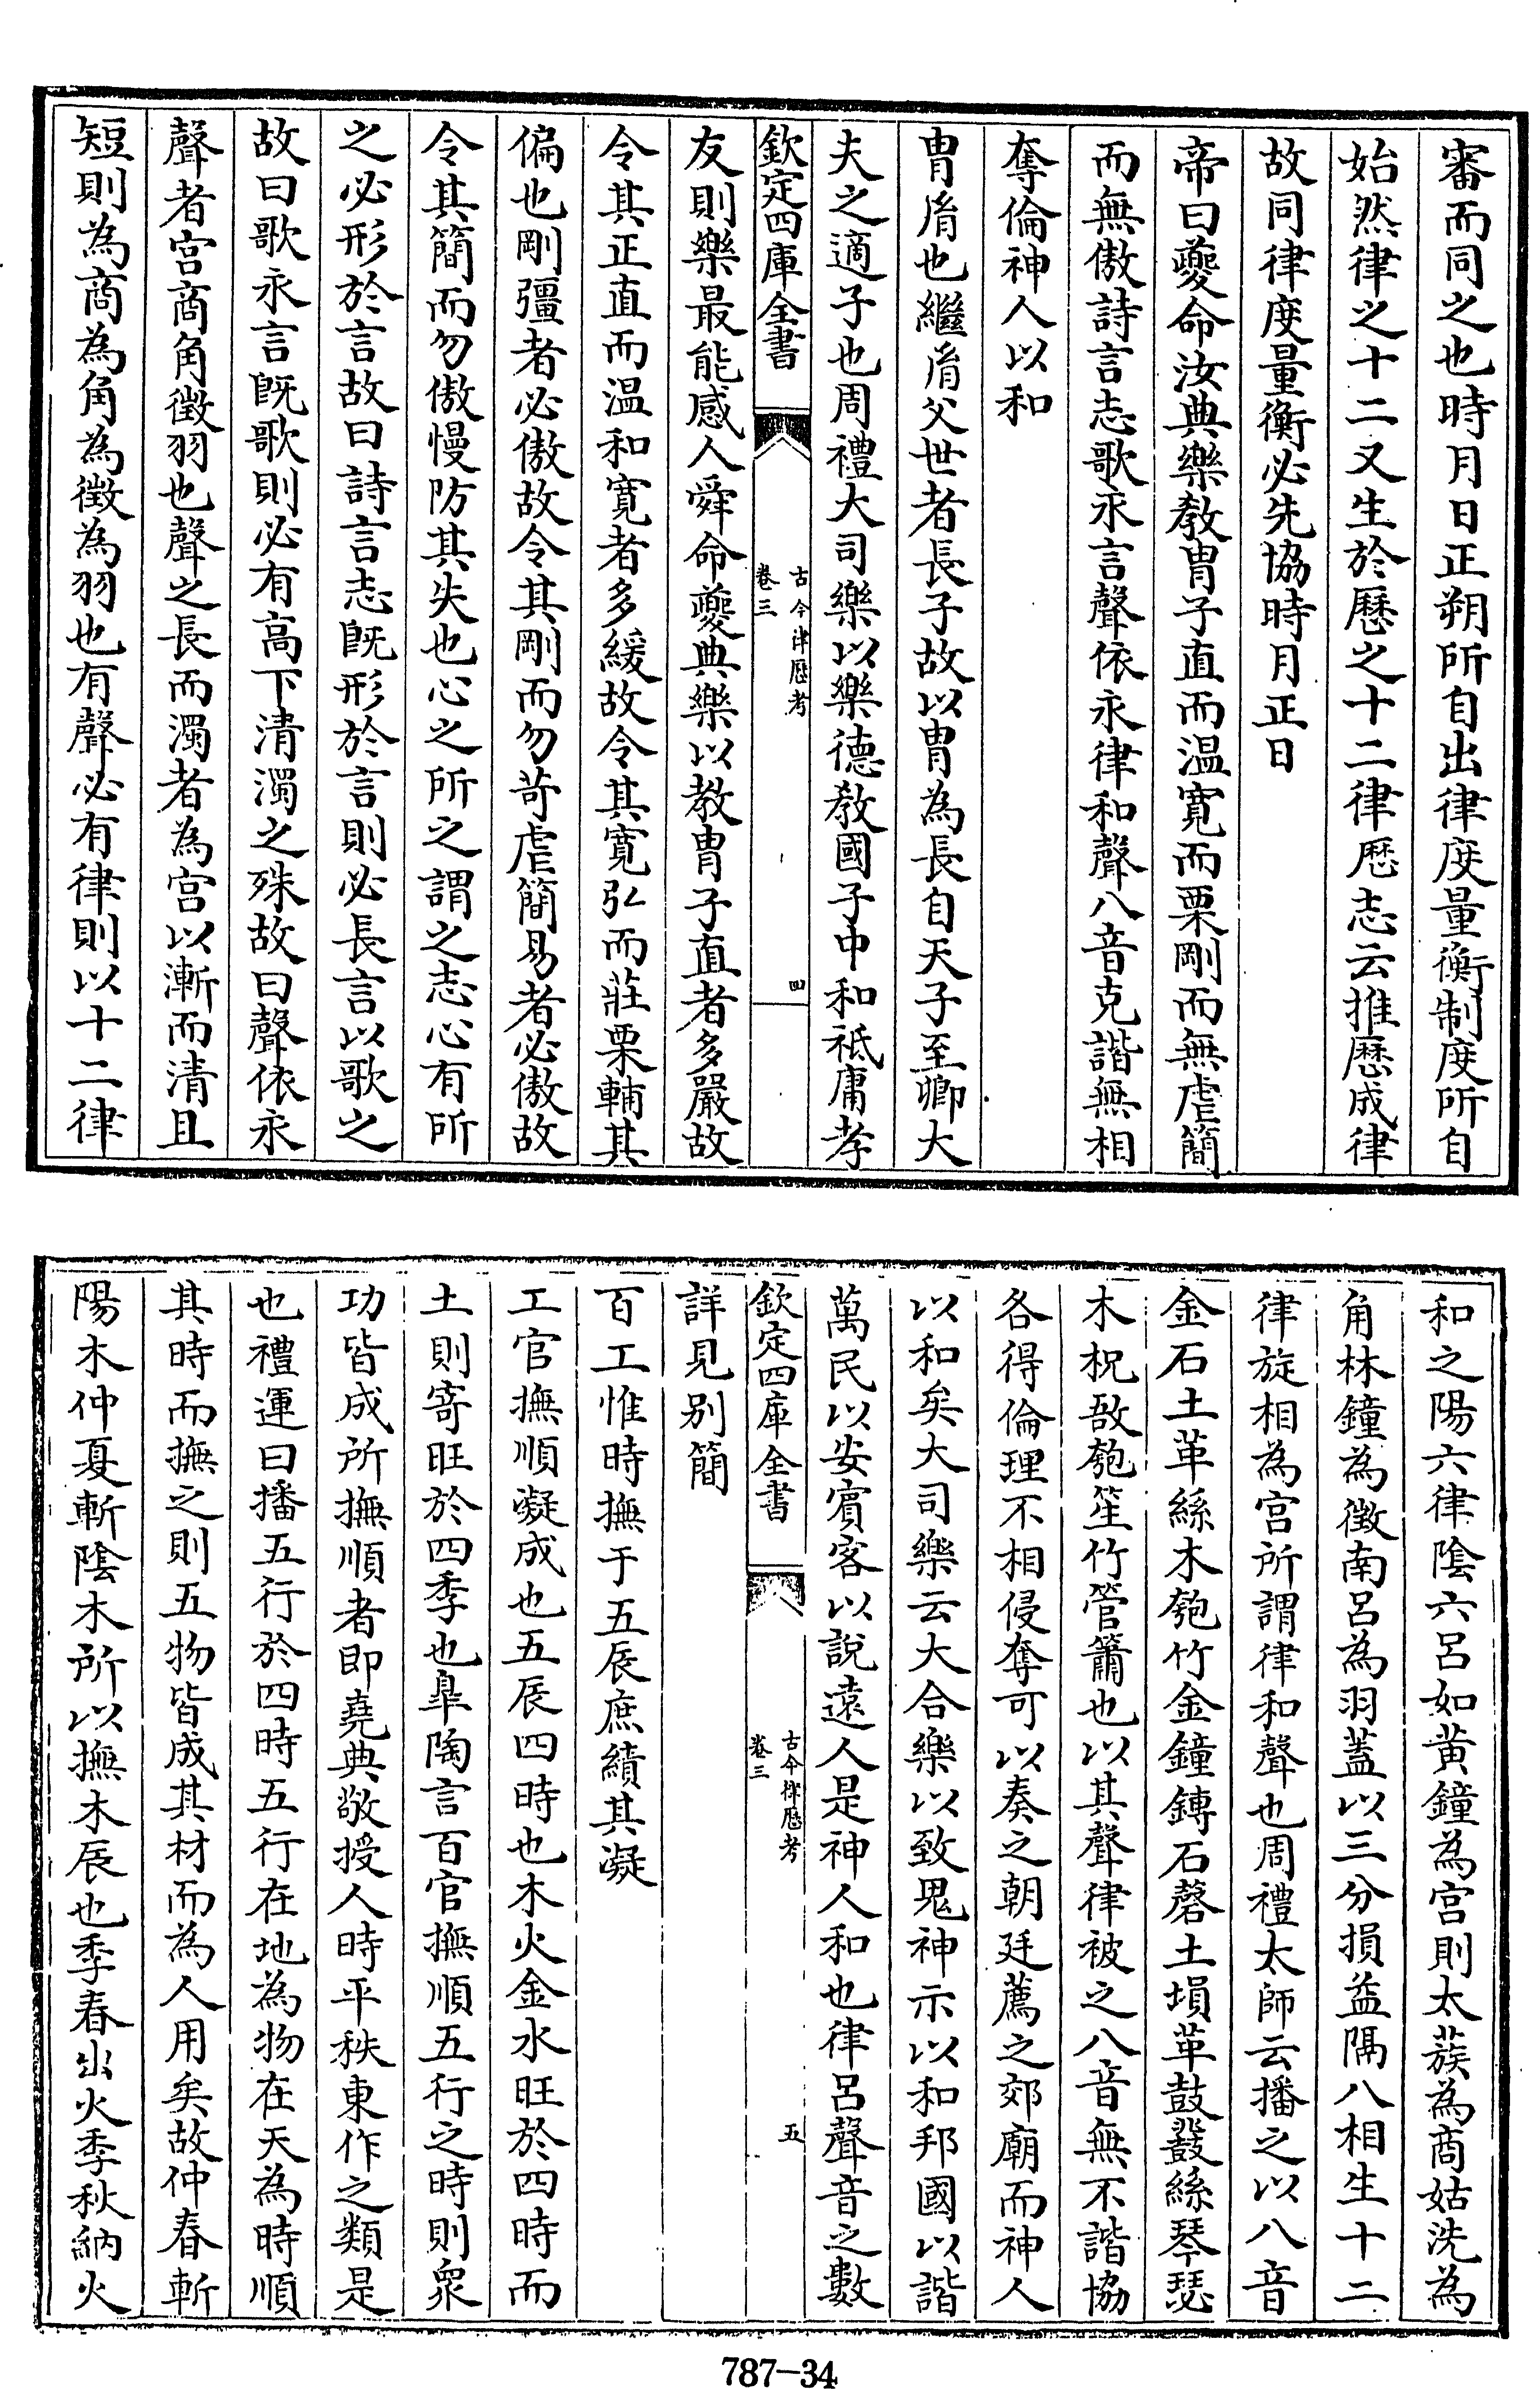 審而同之也時月日正朔所自出律度量衡制度所自
始然律之十二又生於歷之十二律歷志云推歷成律
故同律度量衡必先協時月正日
帝曰夔命汝典樂教胄子直而温寛而栗剛而無虐簡
而無傲詩言志歌永言聲依永律和聲八音克諧無相
奪倫神人以和
胄胤也繼胤父世者長子故以胄為長自天子至卿大
夫之適子也周禮大司樂以樂德教國子中和祗庸孝
欽定四庫全書
古今律歷考
卷三
四
友則樂最能感人舜命夔典樂以教胄子直者多嚴故
令其正直而温和寛者多緩故令其寛弘而莊栗輔其
偏也剛彊者必傲故令其剛而勿苛虐簡易者必傲故
令其簡而勿傲慢防其失也心之所之謂之志心有所
之必形於言故曰詩言志既形於言則必長言以歌之
故曰歌永言既歌則必有高下清濁之殊故曰聲依永
聲者宫商角徵羽也聲之長而濁者為宫以漸而清且
短則為商為角為徵為羽也有聲必有律則以十二律
和之陽六律陰六呂如黄鐘為宫則太蔟為商姑洗為
角林鐘為徵南呂為羽蓋以三分損益隔八相生十二
律旋相為宫所謂律和聲也周禮太師云播之以八音
金石土革絲木匏竹金鐘鎛石磬土塤革鼓鼗絲琴瑟
木柷敔匏笙竹管簫也以其聲律被之八音無不諧協
各得倫理不相侵奪可以奏之朝廷薦之郊廟而神人
以和矣大司樂云大合樂以致鬼神示以和邦國以諧
萬民以安賓客以說遠人是神人和也律呂聲音之數
欽定四庫全書
古今律歷考
卷三
五
詳見别簡
百工惟時撫于五辰庶績其凝
工官撫順凝成也五辰四時也木火金水旺於四時而
土則寄旺於四季也臯陶言百官撫順五行之時則衆
功皆成所撫順者即堯典敬授人時平秩東作之類是
也禮運曰播五行於四時五行在地為物在天為時順
其時而撫之則五物皆成其材而為人用矣故仲春斬
陽木仲夏斬陰木所以撫木辰也季春出火季秋納火
787-34